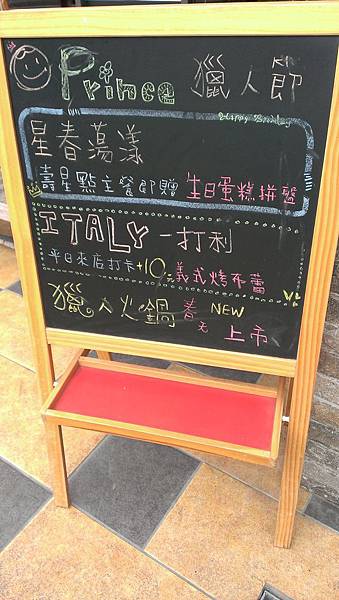 Prince 獵人節
Happy Birthday
星春蕩漾
壽星點主餐即贈 生日蛋糕拼盤
ITALY 一打利
平日來店打卡+10元義式烤布蕾
獵人火鍋 NEW
上市